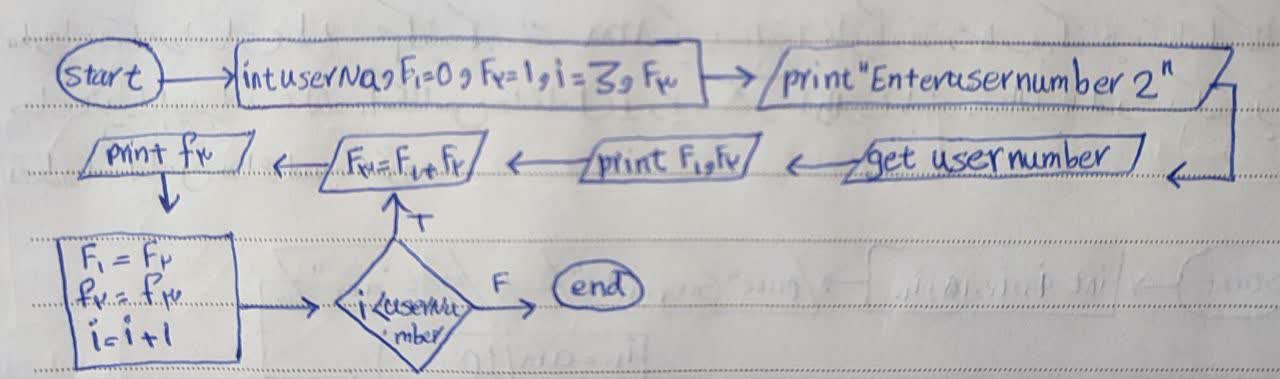 start
int userNa, F۱=0, F۲=1, i=3, F۳
print "Enter usernumber 2"
get usernumber
print F۱, F۲
F۳=F۱+F۲
print f۳
F۱ = F۲
f۲ = f۳
i=i+1
i<userNu
mber
T
F
end